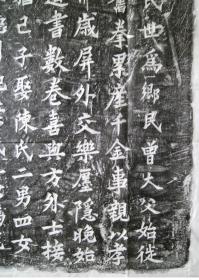 民世為鄉民曾大父始從
舊拳累産千金事親以孝
歲屏外交樂廛隱晚始
書數卷喜與方外士接
己子娶陳氏二男四女